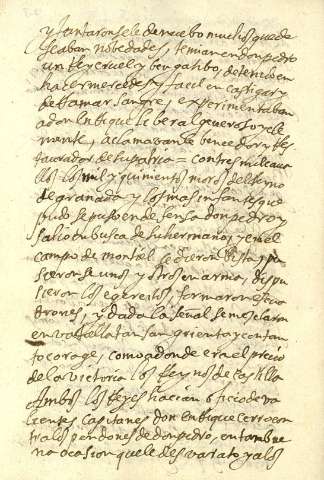 y Juntaronsele de nuebo muchos que de
seaban nobedades, temian en don pedro
un Rey cruel y bengatibo, detenido en
hacer mercedes y facil en castigar y
derramar sangre, experimentaban
a don enrrique liberal generoso y cle
mente, aclamavanle bencedor y Res
taurador de su patria = con tres mil caua
llos los mil y quinientos moros del Reino
de granada y los mas infantes que
pudo se puso en defensa don pedro y
salio en busca de su hermano, y en el
campo de montiel se dieron vista, pu
sieronse unos y otros en arma, dispu
sieron los egercitos, formaron escua
drones, y dada la señal se mosclaron
en batalla tan sangrienta y con tan
to corage, como a donde era el precio
de la Victoria los Reynos de castilla
Ambos los Reyes hacian oficio de va
lientes Capitanes don enrrique cerro con
tra los pendones de don pedro, en tan bue
na ocasion que le desvarato y a los